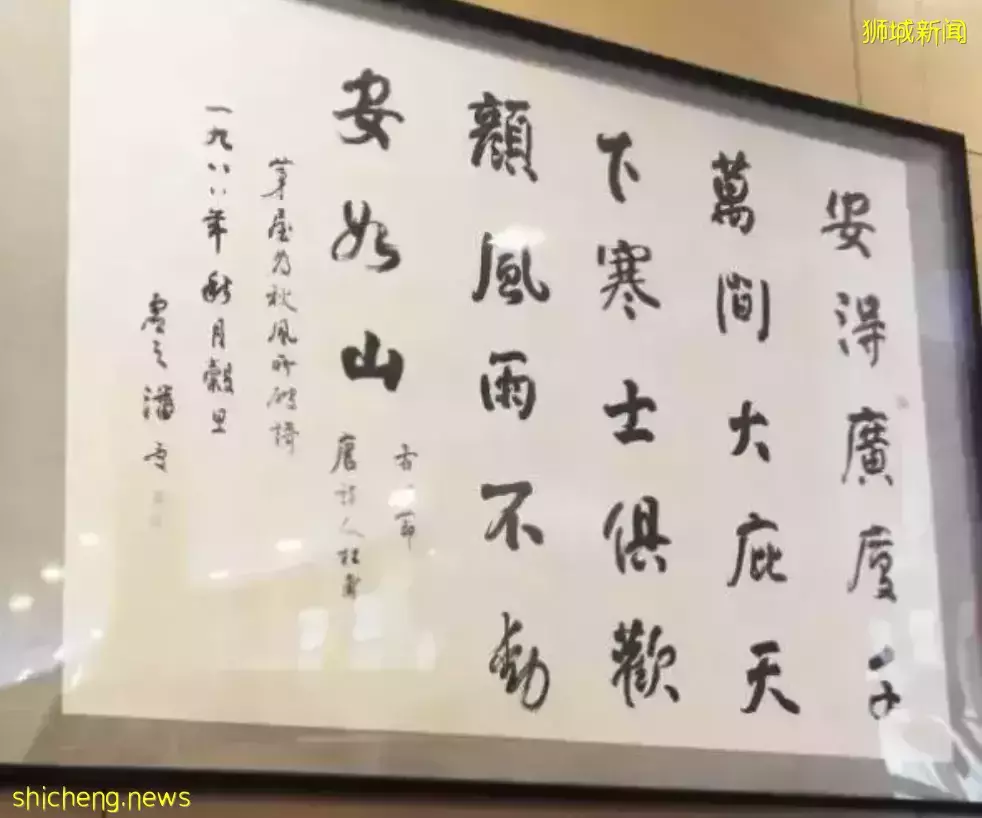 安得廣廈千
萬間大庇天
下寒士俱歡
顏風雨不動
安如山
右節
唐詩人杜甫
茅屋为秋風所破謌
一九八八年秋月穀旦
虛之潘受
狮城新闻
shicheng.news